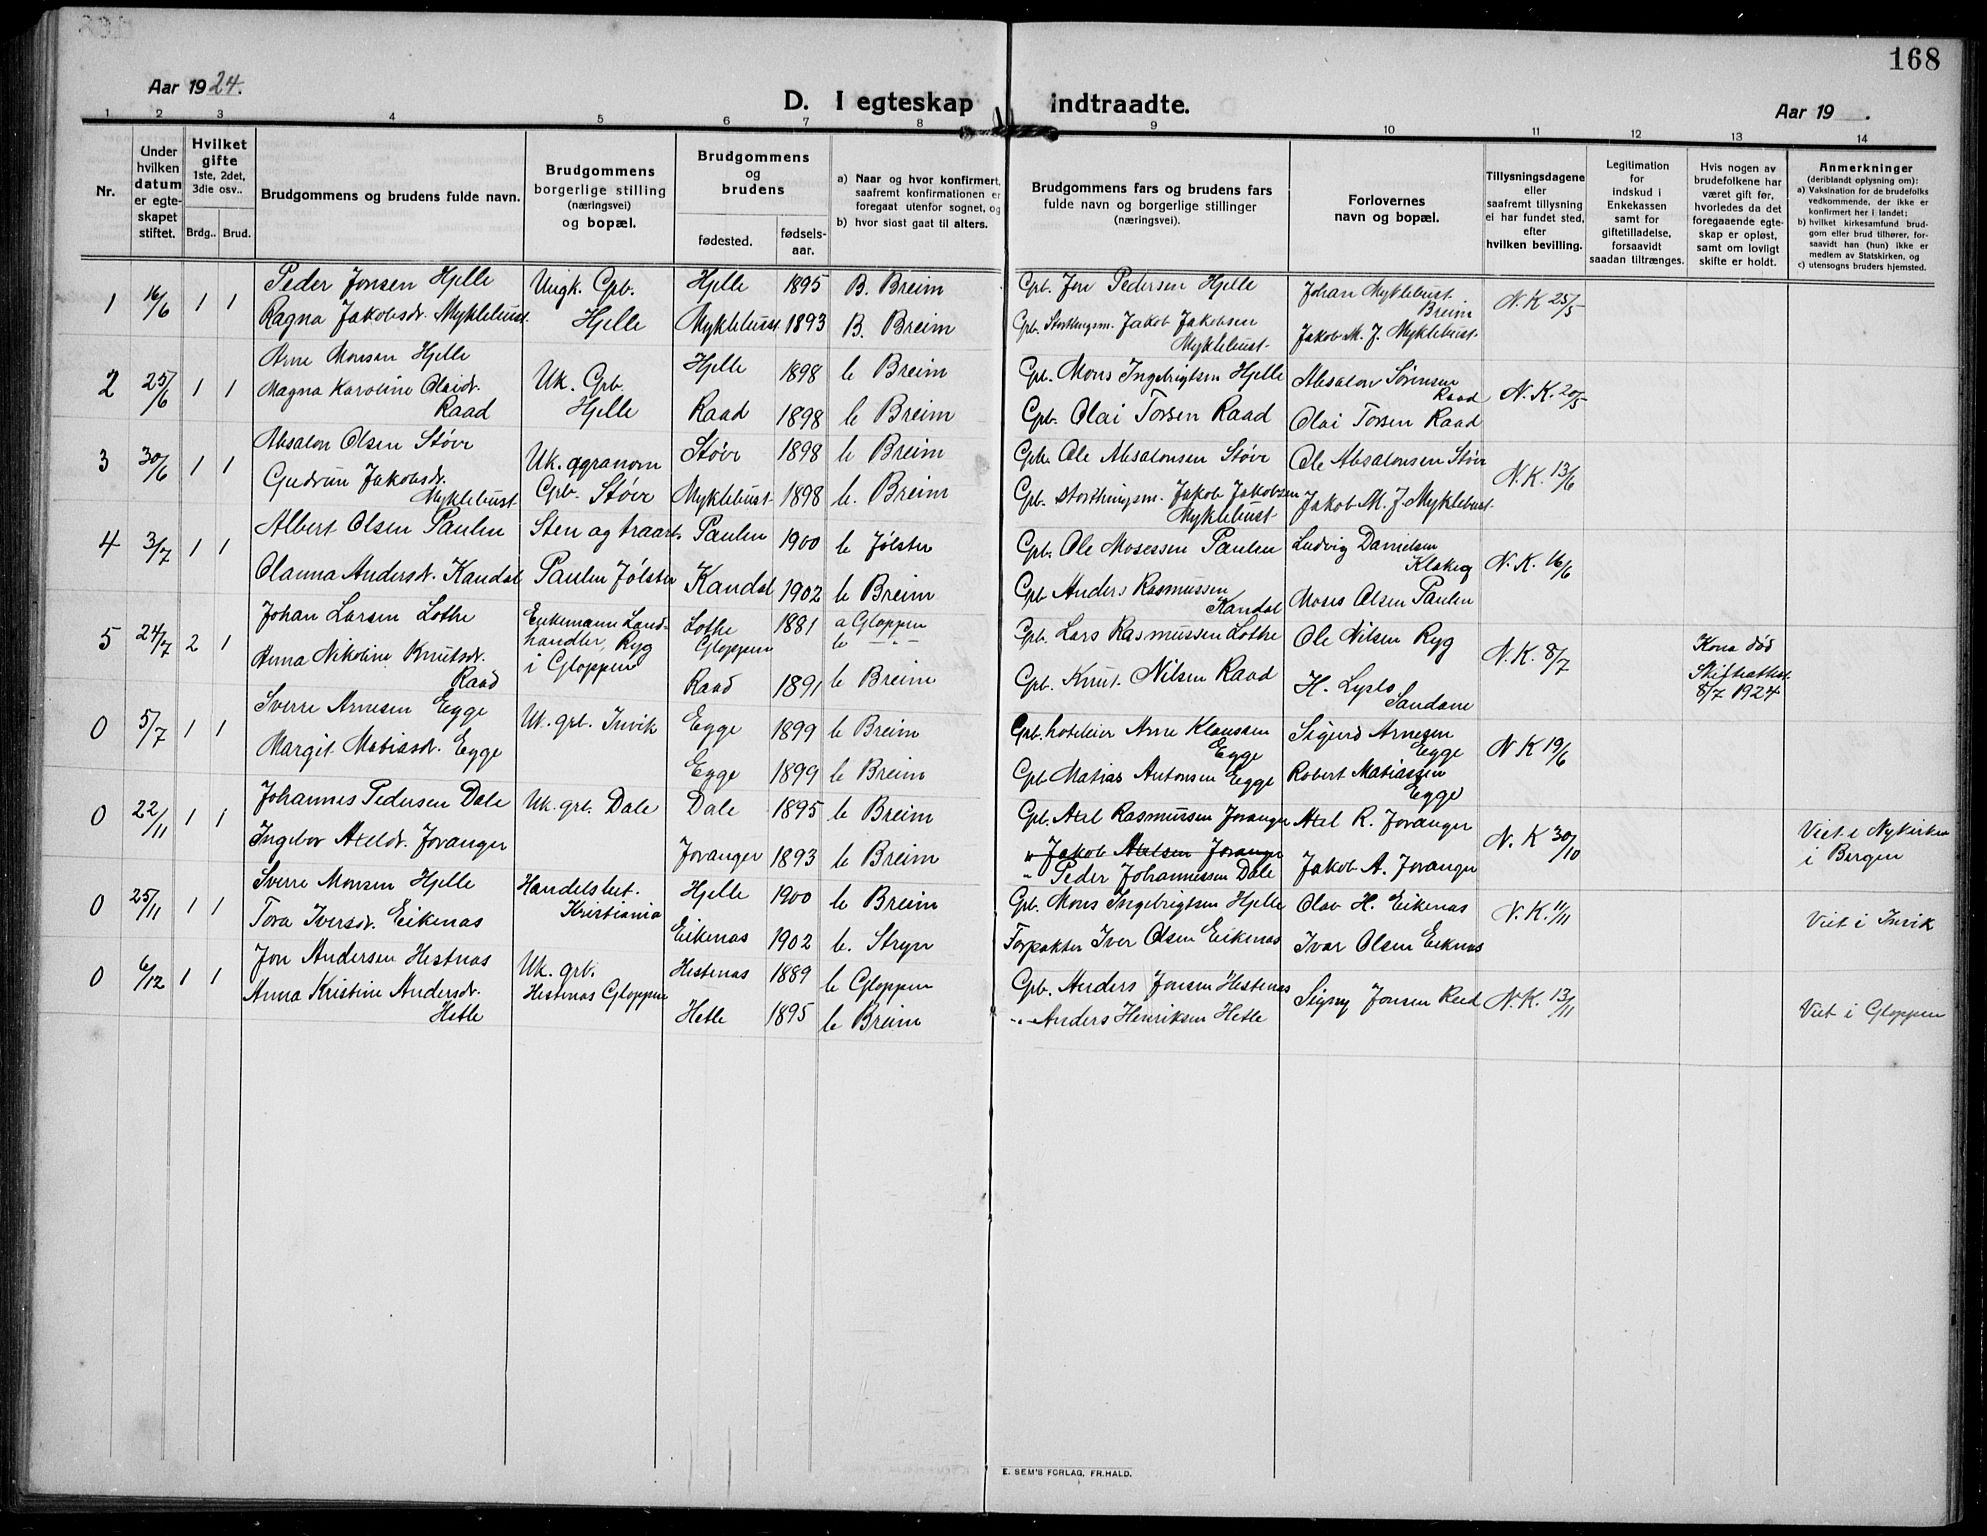 168
Aar 1924.
D. I egteskap indtraadte.
Aar 19 .
1 2 3 4 5 6 7 8 9 10 11 12 13 14
Nr.
Under hvilken datum er egteskapet stiftet.
Hvilket gifte 1ste, 2det, 3die osv..
Brdg.. Brud.
Brudgommens og brudens fulde navn.
Brudgommens borgerlige stilling (næringsvei) og bopæl.
Brudgommens og brudens
fødested.
fødselsaar.
a) Naar og hvor konfirmert, saafremt konfirmationen er foregaat utenfor sognet, og
b) hvor sidst gaat til alters.
Brudgommens fars og brudens fars fulde navn og borgerlige stillinger (næringsvei).
Forlovernes navn og bopæl.
Tillysningsdagene eller saafremt tillysning ei har fundet sted, efter hvilken bevilling.
Legitimation for indskud i Enkekassen samt for giftetilladelse, forsaavidt saadan tiltrænges.
Hvis nogen av brudefolkene har været gift før, hvorledes da det foregaaende egteskap er opløst, samt om lovligt skifte er holdt.
Anmerkninger (deriblandt oplysning om): a) Vaksination for de brudefolks vedkommende, der ikke er konfirmert her i landet; b) hvilket kirkesamfund brudgom eller brud tilhører, forsaavidt han (hun) ikke er medlem av Statskirken, og c) utensogns bruders hjemsted.
1 16/6 1 1 Peder Jonsen Hjelle Ungk. Gpb. Hjelle 1895 B. Breim Gpb. Jon Pedersen Hjelle Johan Myklebust Breim N.K 25/5
Ragna Jakobsdr. Myklebust Hjelle Myklebust 1893 B. Breim Gpb. Storthingsm. Jakob Jakobsen Myklebust Jakob M. J. Myklebust
2 25/6 1 1 Arne Monsen Hjelle Uk. Gpb. Hjelle 1898 b Breim Gpb. Mons Ingebrigtsen Hjelle Absalon Sørensen Raad N.K. 20/5
Magna Karoline Olaidr. Raad Hjelle Raad 1898 b Breim Gpb. Olai Torsen Raad Olai Torsen Raad
3 30/6 1 1 Absalon Olsen Støve Uk. agranom Støve 1898 b Breim Gpb. Ole Absalonsen Støve Ole Absalonsen Støve N.K. 13/6
Gudrun Jakobsdr. Myklebust Gpb. Støve Myklebust 1898 b. Breim Gpb. storthingsm. Jakob Jakobsen Myklebust Jakob M. J. Myklebust
4 3/7 1 1 Albert Olsen Paulen Sten og traarb. Paulen 1900 b Jølster Gpb. Ole Mosessen Paulen Ludvig Danielsen Klakeg N.K. 16/6
Olanna Andersdr. Kandal Paulen Jølster Kandal 1902 b Breim Gpb Anders Rasmussen Kandal Moses Olsen Paulen
5 24/7 2 1 Johan Larsen Lothe Enkemann Landhandler, Ryg i Gloppen Lothe Gloppen 1881 a Gloppen b — " — Gpb. Lars Rasmussen Lothe Ole Nilsen Ryg N.K. 8/7 Kona død Skifteattest 8/7 1924
Anna Nikoline Knutsdr. Raad Raad 1891 b Breim Gpb. Knut Nilsen Raad H. Lyslo Sandane
0 5/7 1 1 Sverre Arnesen Egge Uk. grb. Invik Egge 1899 b Breim Gpb. hoteleier Arne Klausen Egge Sigurd Arnesen Egge N.K 19/6
Margit Matiasdr. Egge Egge 1899 b Breim Gpb Matias Antonsen Egge Robert Matiassen Egge
0 22/11 1 1 Johannes Pedersen Dale Uk. grb. Dale Dale 1895 b Breim Gpb. Axel Rasmussen Joranger Axel R. Joranger N.K 30/10 Viet i Nykirken i Bergen
Ingebor Axeldr. Joranger Joranger 1893 b Breim " Jakob Axelsen Joranger
" Peder Johannessen Dale Jakob A. Joranger
0 25/11 1 1 Sverre Monsen Hjelle Handelsbet. Kristiania Hjelle 1900 b Breim Gpb. Mons Ingebrigtsen Hjelle Olav H. Eikenas N.K. 11/11 Viet i Invik
Tora Iversdr. Eikenas Eikenas 1902 b. Stryn Forpakter Iver Olsen Eikenas Ivar Olsen Eiknas
0 6/12 1 1 Jon Andersen Hestnas Uk. grb. Hestenas Gloppen Hestenas 1889 b Gloppen Gpb. Anders Jonsen Hestenas Signy Jonsen Reed N.K. 13/11 Viet i Gloppen
Anna Kristine Andersdr. Hetle Hetle 1895 b Breim " Anders Henriksen Hetle
E. SEM'S FORLAG, FR.HALD.